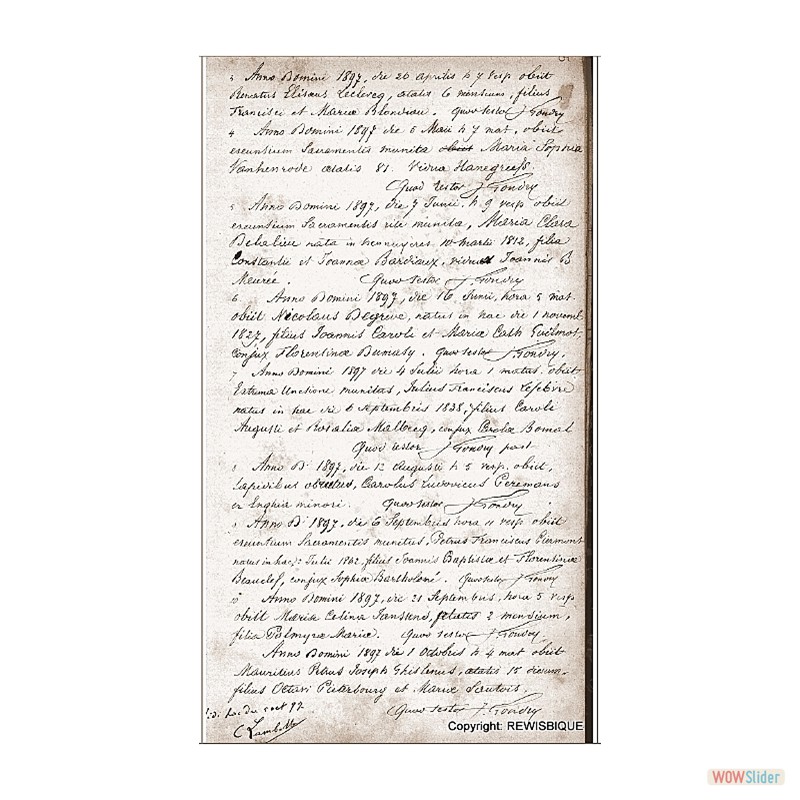 3 Anno Domini 1897, die 26 aprilis h 7 vesp obiit
Renatus Elisaus Leclercq, aetatis 6 mensium, filius
Francisci et Mariae Blondiau. Quod testor J Gondry
4 Anno Domini 1897 die 6 Maii h 7 mat. obiit
exeuntium Sacramentis munita obiit Maria Sophia
Vanhenrode aetatis 81. Vidua Hanegreefs.
Quod testor J Gondry
5 Anno Domini 1897, die 7 Junii, h 9 vesp obiit
exeuntium Sacramentis rite munita, Maria Clara
Debalieu nata in hennuyeres 10 martii 1812, filia
Constantii et Joannae Bardiaux, vidua Joannis B
Meurée. Quod testor J Gondry
6 Anno Domini 1897, die 16 Junii, hora 5 mat.
obiit Nicolaus Degrève, natus in hac die 1 novemb
1827, filius Joannis Caroli et Maria Cath Guilmot,
conjux Florentinae Dumasy. Quod testor J Gondry.
7 Anno Domini 1897 die 4 Julii hora 1 matut. obiit
Extrema Unctione munitus, Julius Franciscus Lefebvre
natus in hac die 6 septembris 1838, filius Caroli
Augusti et Rosaliae Malbecq, conjux Bomal
Quod testor J Gondry past
8 Anno D. 1897, die 12 Augusti h 5 vesp. obiit,
lapidibus Carolus Ludovicus Peremans
ex Enghia minori. Quod testor J Gondry
9 Anno D. 1897, die 6 Septembris hora 11 vesp obiit
exeuntium Sacramentis munitus, Petrus Franciscus Clermont
natus in hac Julii 1862, filius Joannis Baptistae et Florentinae
Beauclef, conjux Sophiae Bartholomé. Quod testor J Gondry
10 Anno Domini 1897, die 21 Septembris, hora 5 vesp
obiit Maria Celina Janssens, aetatis 2 mensium,
filia Palmyrae Maria. Quod testor J Gondry
Anno Domini 1897 die 1 Octobris h 4 mat obiit
Mauritius Petrus Joseph Ghislenus, aetatis 15 dierum,
filius Octavi Pieterbourg et Mariae Sautois.
Quod testor J Gondry
oct 97
C Lambotte
Copyright: REWISBIQUE
WOWSlider